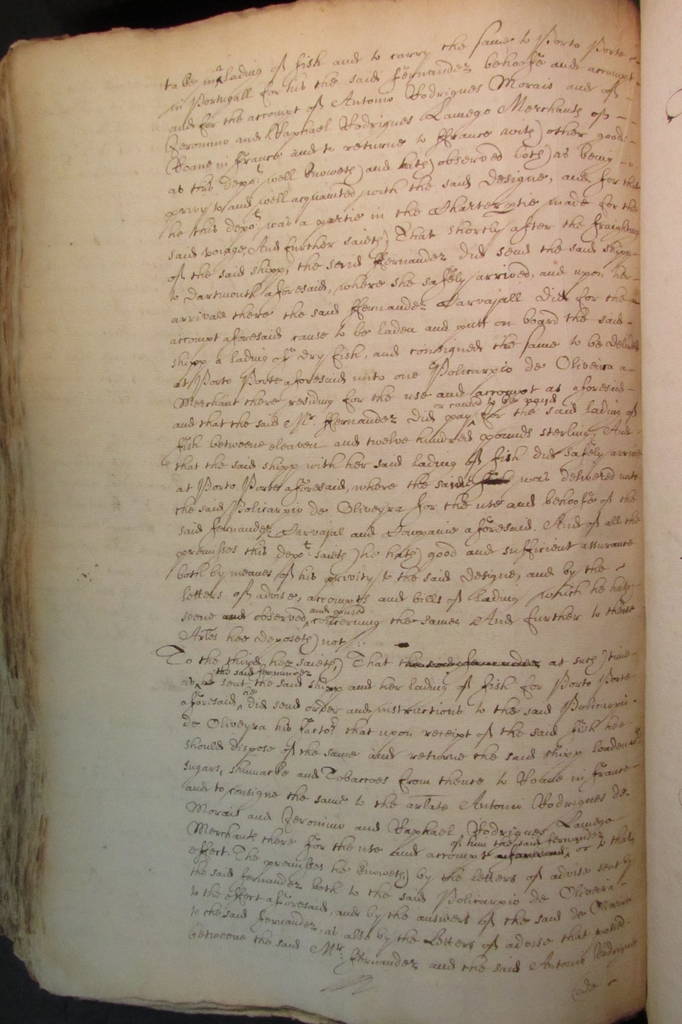 take in a lading of fish and to carry the same to Porto Porte
in Portugall for his the said Fernandez behoofe and accompt
and for the accompt of Antonio Rodrigues Morais and of
Geronimo and Raphael Rodrigues Lamego Merchants of
Roane in France and to returne to France with other goods
as this depot well knoweth and hath observed both as being
privy to and well acquainted with the said designe, and for that
he this depot was a partie in the Charterptie made for the
said voiage, And further saieth That shortly after the fraighting
of the said shipp, the said Fernandez did send the said shipp
to Dartmouth aforesaid, where she safely arrived, and upon her
arrivall there the said Fernandez Carvajall did for the
accompt aforesaid cause to be laden and putt on board the said
shipp a lading of dry fish, and consigned the same to be delivered
at Porto Porte aforesaid unto one Policarpio de Oliveira a
Merchant there residing for the use and accompt as aforesaid
and that the said Mr Fernandez did pay or caused to be payd for the said lading of
fish betweene eleaven and twelve hundred pounds sterling And
that the said shipp with her said lading of fish did safely arrive
at Porto Porte aforesaid, where the said was delivered unto
the said Policarpio de Oliveyra for the use and behoofe of the
said Fernandez Carvajal and Companie aforesaid. And of all the
premisses this depot saieth he hath good and sufficient assurance
both by meanes of his privity to the said designe, and by the
letters of advise, accompts and bills of lading which he hath
seene and observed, concerning the same And further to these
Arles hee deposeth not
To the third hee saieth, That at such time
as the said Fernandez sent the said shipp and her lading of fish for Porto Porte
aforesaid, he did send order and instructions to the said Policarpio
de Oliveyra his factor that upon receipt of the said fish hee
should dispose of the same and returne the said shipp loaden with
sugars, shumacke and Tobaccoes from thence to Roane in France
and to consigne the same to the arlate Antonio Rodrigues de
Morais and Geronimo and Raphael Rodrigues Lamego
Merchants there for the use and accompt of him the said Fernandez or to that
effect. The premisses he knoweth by the letters of advise sent by
the said Fernandez both to the said Policarpio de Oliveira
to the effect aforesaid, and by the answers of the said de Oliveira
to the said Fernandez, as also by the letters of advise that passed
betweene the said Mr Fernandez and the said Antonio Rodrigues